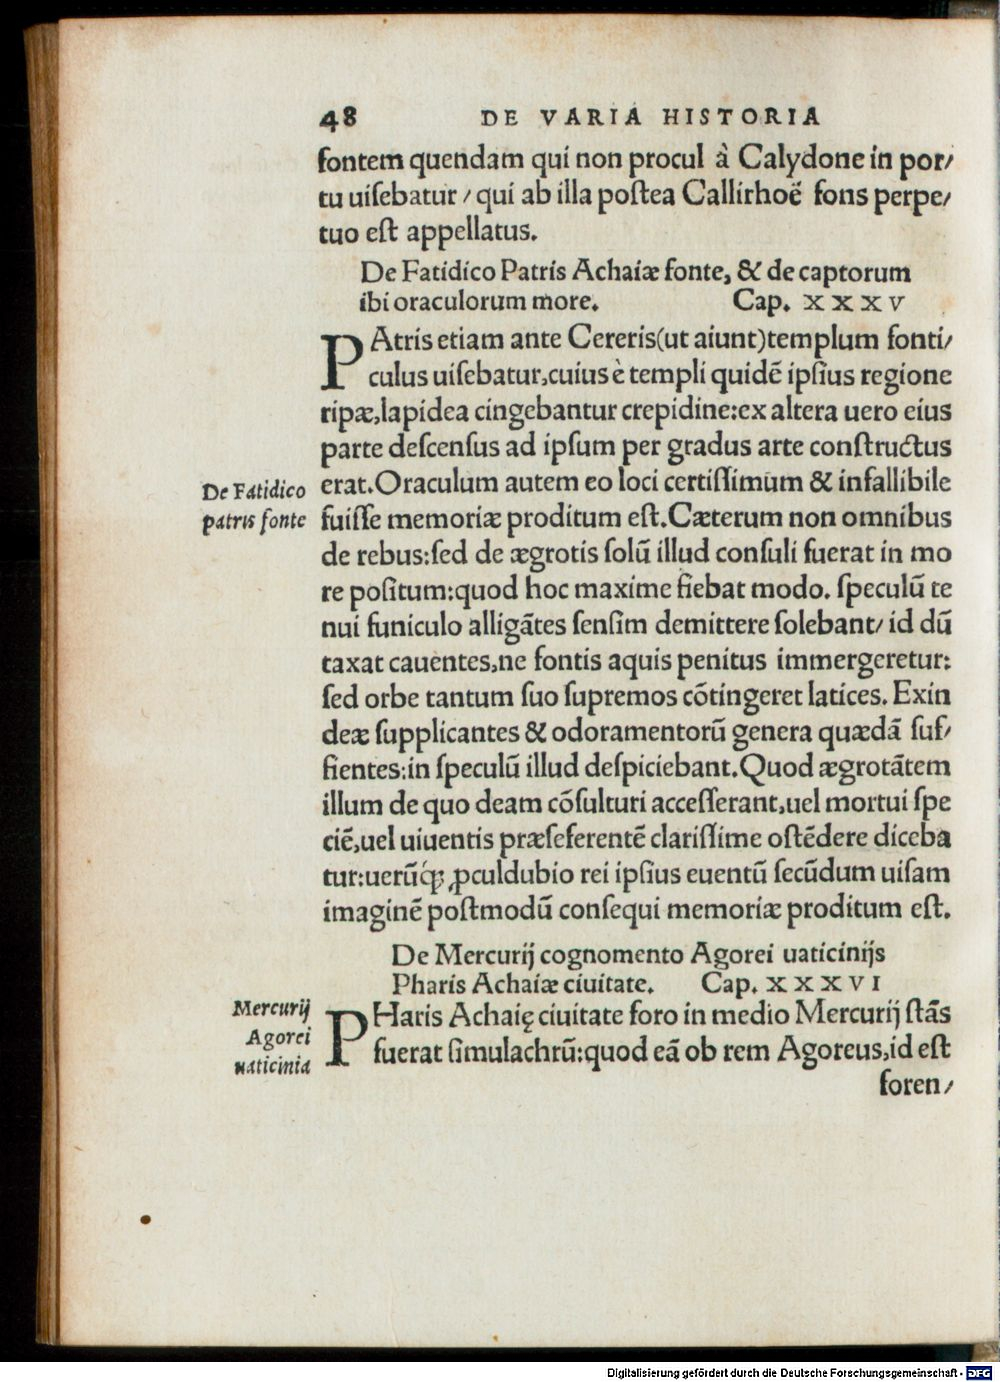 48 DE VARIA HISTORIA
fontem quendam qui non procul à Calydone in por/
tu uiſebatur / qui ab illa poſtea Callirhoë fons perpe/
tuo eſt appellatus.
De Fatidico Patris Achaiæ fonte, & de captorum
ibi oraculorum more. Cap. XXXV
PAtris etiam ante Cereris(ut aiunt)templum fonti/
culus uiſebatur,cuius è templi quidẽ ipſius regione
ripæ,lapidea cingebantur crepidine:ex altera uero eius
parte deſcenſus ad ipſum per gradus arte conſtructus
De Fatidico
patris fonte
erat.Oraculum autem eo loci certiſſimum & infallibile
fuiſſe memoriæ proditum eſt.Cæterum non omnibus
de rebus:ſed de ægrotis ſolũ illud conſuli fuerat in mo
re poſitum:quod hoc maxime fiebat modo. ſpeculũ te
nui funiculo alligãtes ſenſim demittere ſolebant/ id dũ
taxat cauentes,ne fontis aquis penitus immergeretur:
ſed orbe tantum ſuo ſupremos cõtingeret latices. Exin
deæ ſupplicantes & odoramentorũ genera quædã ſuf/
fientes:in ſpeculũ illud deſpiciebant.Quod ægrotãtem
illum de quo deam cõſulturi acceſſerant,uel mortui ſpe
ciẽ,uel uiuentis præſeferentẽ clariſſime oſtẽdere diceba
tur:uerũq́ꝫ ꝓculdubio rei ipſius euentũ ſecũdum uiſam
imaginẽ poſtmodũ conſequi memoriæ proditum eſt.
De Mercurij cognomento Agorei uaticinijs
Pharis Achaiæ ciuitate. Cap. XXXVI
Mercurij
Agorei
uaticinia
PHaris Achaię ciuitate foro in medio Mercurij ſtãs
fuerat ſimulachrũ:quod eã ob rem Agoreus,id eſt
foren/
Digitalisierung gefördert durch die Deutsche Forschungsgemeinschaft - DFG